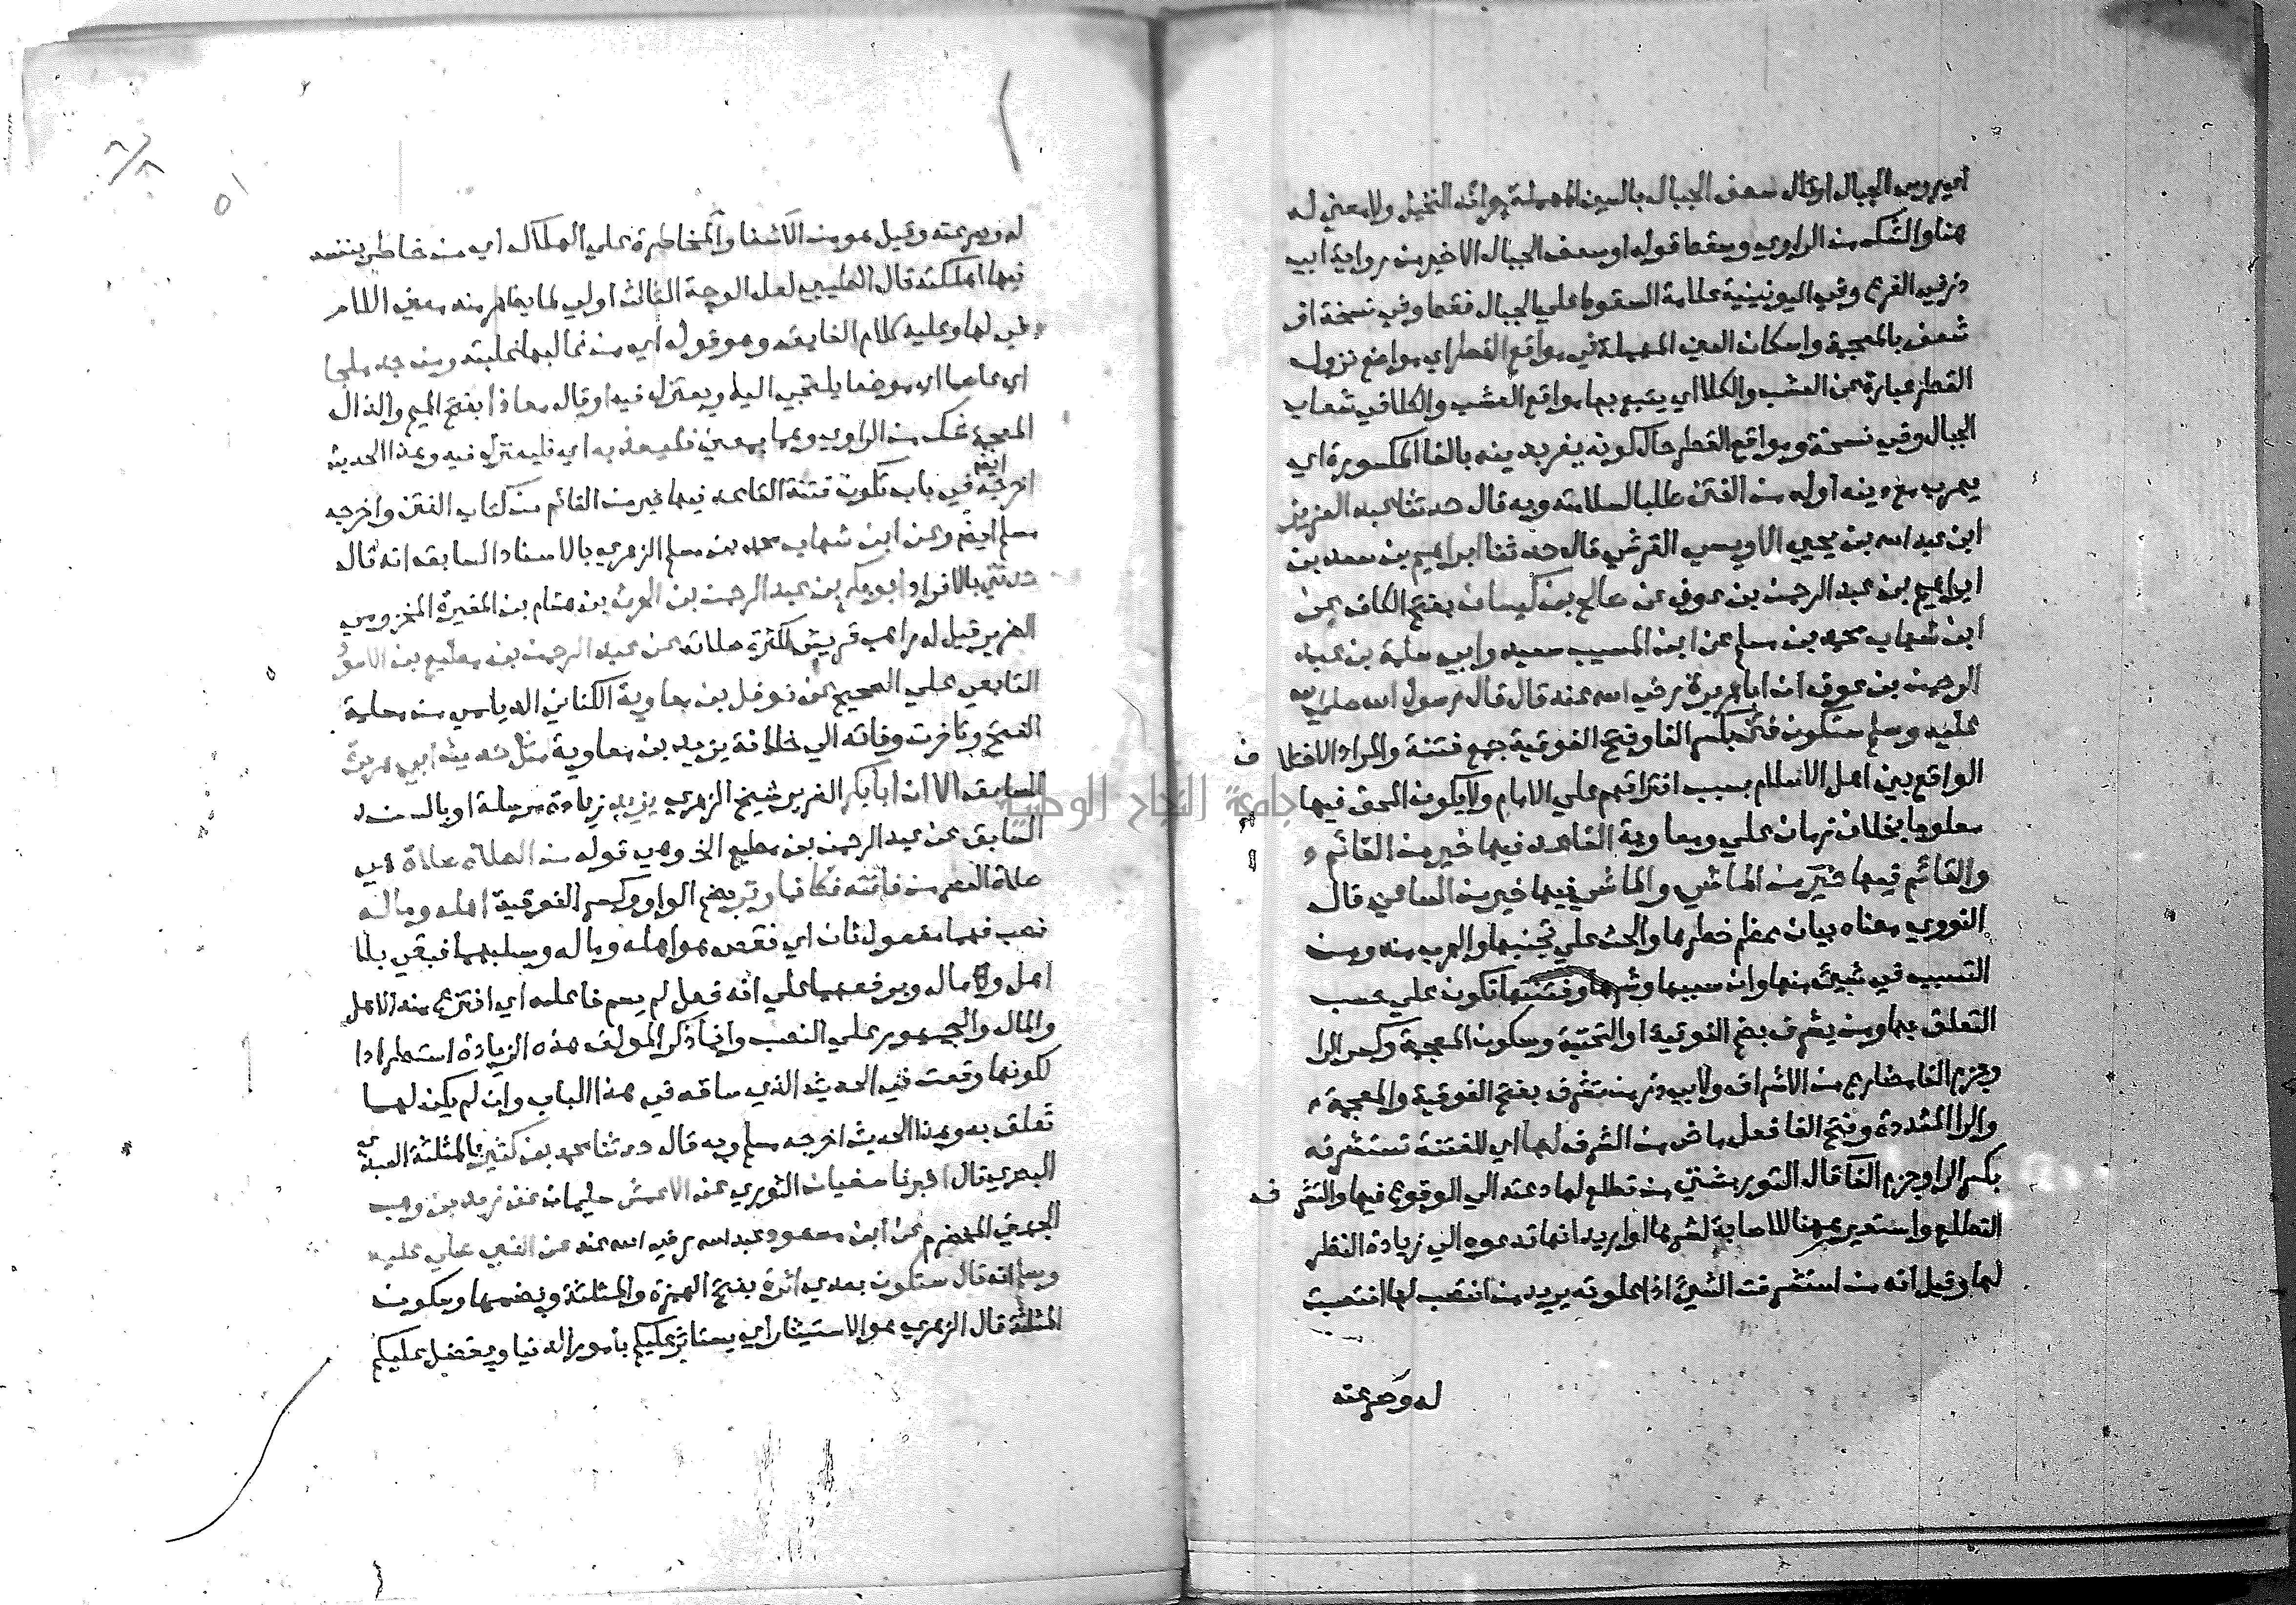 اي روس الجبال او قال سعف الجبال بالسين المهملة جرايد النخيل ولا معني له
هنا والشك من الراوي وسقط قوله او سعف الجبال الاخير من رواية ابي
ذر في الفرع وفي اليونينية علامة السقوط علي الجبال فقط وفي نسخة او
شعف بالمعجمة واسكان العين المهملة في مواقع القطر اي مواضع نزول
القطر عبارة عن العشب والكلا اي يتبع بها مواقع العشب والكلا في شعاب
الجبال وفي نسخة ومواقع القطر حال كونه يفر بدينه بالفا المكسورة اي
يهرب مع دينه اوله من الفتن طلبا لسلامته وبه قال حدثنا عبد العزيز
ابن عبد الله بن يحيي الاويسي القرشي قال حدثنا ابراهيم بن سعد بن
ابراهيم بن عبد الرحمن بن عوف عن صالح بن كيسان بفتح الكاف عن
ابن شهاب محمد بن مسلم عن ابن المسيب سعيد وابي سلمة بن عبد
الرحمن بن عوف ان ابا هريرة رضي الله عنه قال قال رسول الله صلي الله
عليه وسلم ستكون فتن بكسر الفا وفتح الفوقية جمع فتنة والمراد الاختلا ف
الواقع بين اهل الاسلام بسبب افتراقهم علي الامام ولا يكون المحق فيها
معلوما بخلاف زمان علي ومعاوية القاعد فيها خير من القائم و
والقائم فيها خير من الماشي والماشي فيها خير من الساعي قال
النووي معناه بيان عظم خطرها والحث علي تجنبها والهرب منه ومن
التسبب في شيئ منها وان سببها وشرها وفتنتها تكون علي حسب
التعلق بها ومن يشرف بضم الفوقية او التحتية وسكون المعجمة وكسر الرا
وجزم الفا مضارع من الاشراف ولابي ذر من تشرف بفتح الفوقية والمعجمة
والرا المشددة وفتح الفا فعل ماض من الشرف لها اي للفتنة تستشرفه
بكسر الرا وجزم الفا قال التوربشتي من تطلع لها دعته الي الوقوع فيها والتشر ف
التطلع واستعير ههنا للاصابة لشرها او اريد انها تدعوه الي زيادة النظر
لها وقيل انه من استشرفت الشيئ اذا علوته يريد من انتصب لها انتصبت
له وصرعته
له وصرعته وقيل هو من الاشفا والمخاطرة علي الهلاك اي من خاطر بنفسه
فيها اهلكته قال الطيبي لعل الوجه الثالث اولي لما يظهر منه معني اللام
في لها وعليه كلام الفايق وهو قوله اي من غالبها غلبته ومن وجد ملجا
اي عاصما اي موضعا يلتجي اليه ويعتزل فيه او قال معاذا بفتح الميم والذال
المعجمة شك من الراوي وهما بمعني فليعذ به اي فليعتزل فيه وهذا الحديث
اخرجه ايضا في باب تكون فتنة القاعد فيها خير من القائم من كتاب الفتن واخرجه
مسلم ايضا وعن ابن شهاب محمد بن مسلم الزهري بالاسناد السابق انه قال
حدثني بالافراد ابو بكر بن عبد الرحمن بن الحرث بن هشام بن المغيرة المخزومي
الضرير قيل له راهب قريش لكثرة صلاته عن عبد الرحمن بن مطيع بن الاسود
التابعي علي الصحيح عن نوفل بن معاوية الكناني الديلمي من مسلمة
الفتح وتاخرت وفاته الي خلافة يزيد بن معاوية مثل حديث ابي هريرة
السابق الا ان ابا بكر الضرير شيخ الزهري يزيد زيادة مرسلة او بالسند
السابق عن عبد الرحمن بن مطيع الخ وهي قوله من الصلاة صلاة هي
صلاة العصر من فاتته فكانما وتر بضم الواو وكسر الفوقية اهله وماله
نصب فيهما مفعول ثان اي نقص هو اهله وماله وسلبهما فبقي بلا
اهل ولا مال وبرفعهما علي انه فعل لم يسم فاعله اي انتزع منه الاهل
والمال والجمهور علي النصب وانما ذكر المولف هذه الزيادة استطرادا
لكونها وقعت في الحديث الذي ساقه في هذا الباب وان لم يكن لها
تعلق به وهذا الحديث اخرجه مسلم وبه قال حدثنا محمد بن كثير بالمثلثة العبدي
البصري قال اخبرنا سفيان الثوري عن الاعمش سليمان عن زيد بن وهب
الجهني المخضرم عن ابن مسعود عبد الله رضي الله عنه عن النبي صلي عليه
وسلم انه قال ستكون بعدي اثرة بفتح الهمزة والمثلثة وبضمها وسكون
المثلثة قال الزهري هو الاستيثار اي يستاثر عليكم بامور الدنيا ويفضل عليكم
جامعة النجاح الوطنية